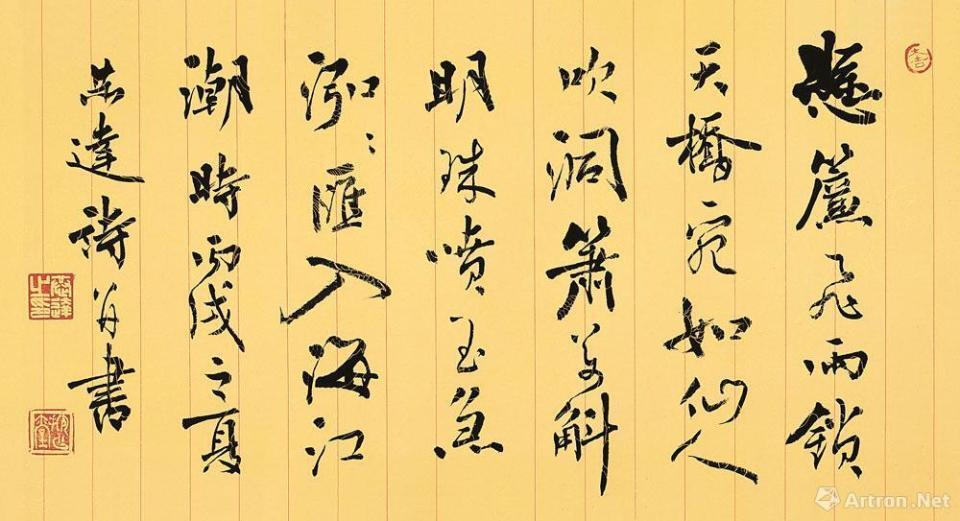 懸簾飛雨鎖
天橋宛如仙人
吹洞簫萬斛
明珠噴玉急
泓々匯入海江
潮時丙戌之夏
達詩并書
Artron.Net